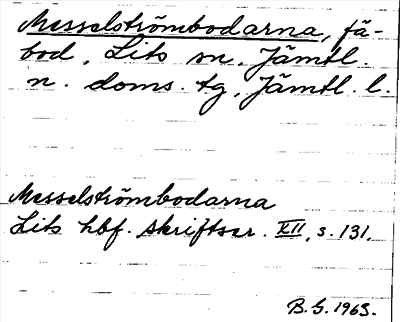 Messelströmbodarna, fä-
bod, Lits sn. Jämtl.
n. doms. tg, Jämtl. l.
Messelströmbodarna
Lits hbf. skriftser. XII, s. 131.
B. G. 1963.